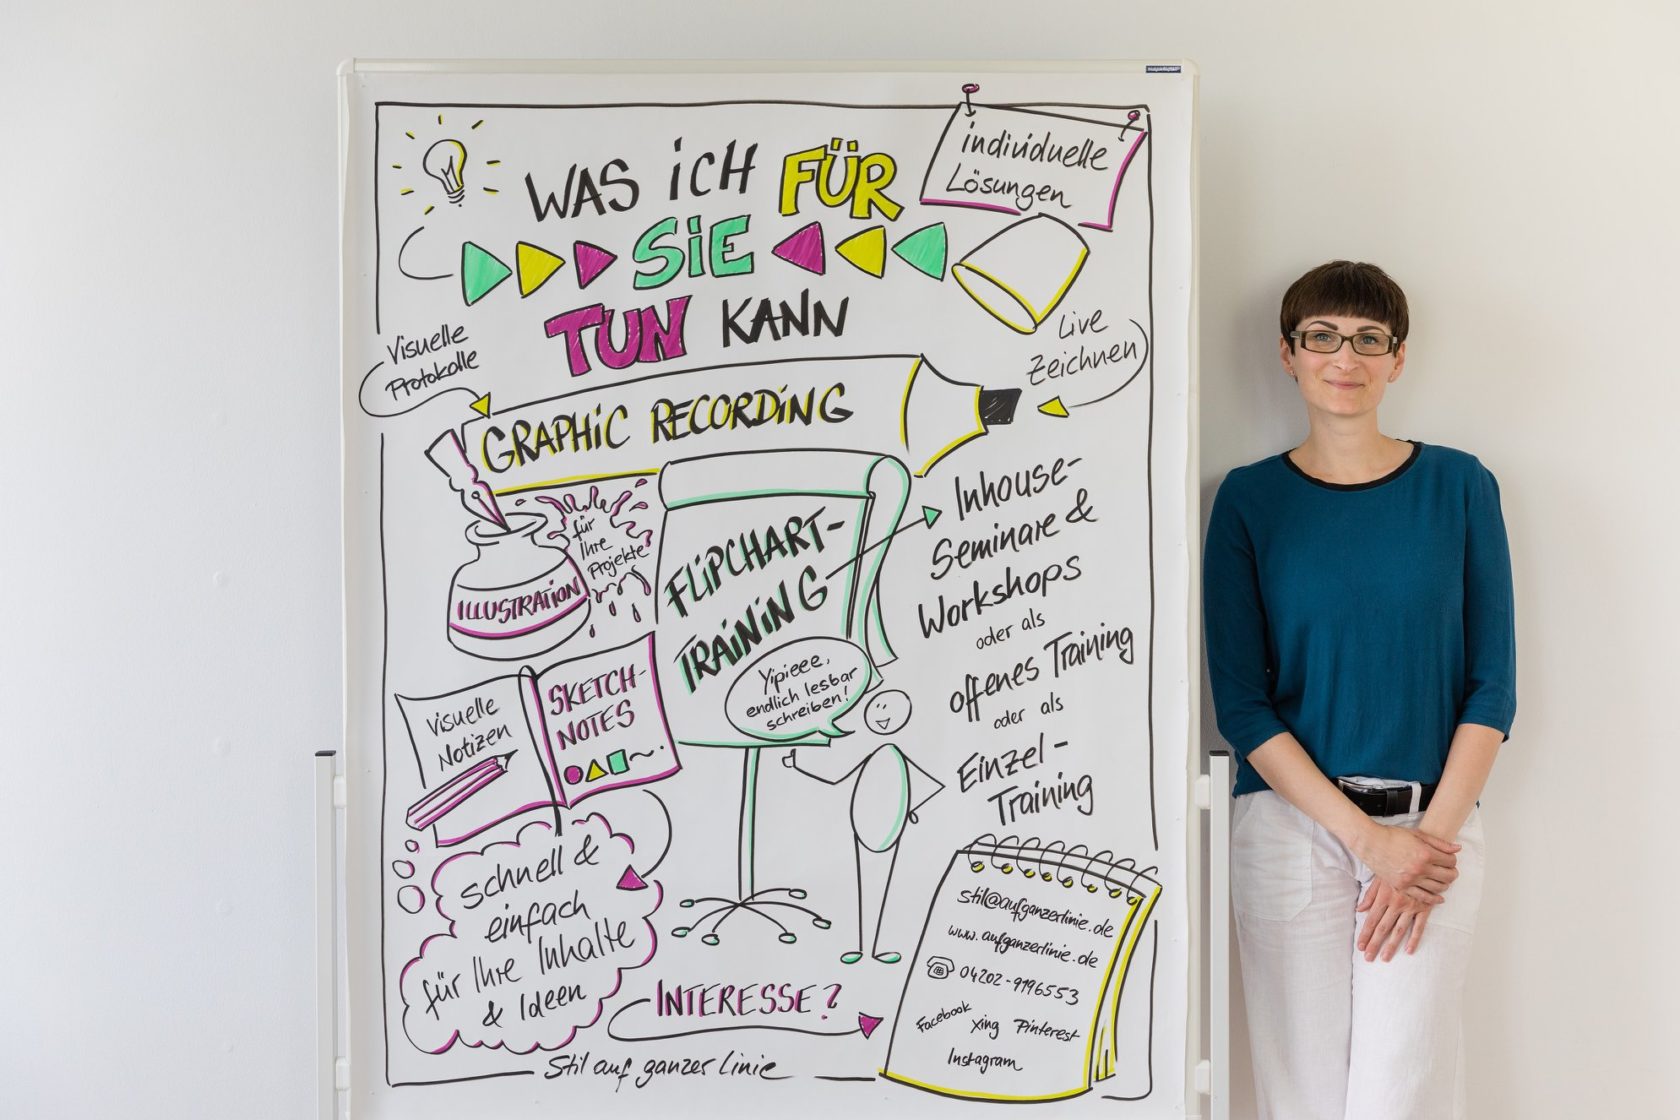 individuelle
Lösungen
WAS iCH FÜR
SiE
TUN KANN
Visuelle
Protokolle
Live
Zeichnen
GRAPHiC RECORDiNG
für
Ihre
Projekte
ILLUSTRATiON
FLiPCHART-
TRAiNiNG
Inhouse-
Seminare &
Workshops
oder als
offenes Training
oder als
Einzel-
Training
Yipieee,
endlich lesbar
schreiben!
Visuelle
Notizen
SKETCH-
NOTES
schnell &
einfach
für Ihre Inhalte
& Ideen
INTERESSE?
stil@aufganzerlinie.de
www.aufganzerlinie.de
04202-9196553
Facebook Xing Pinterest
Instagram
Stil auf ganzer Linie